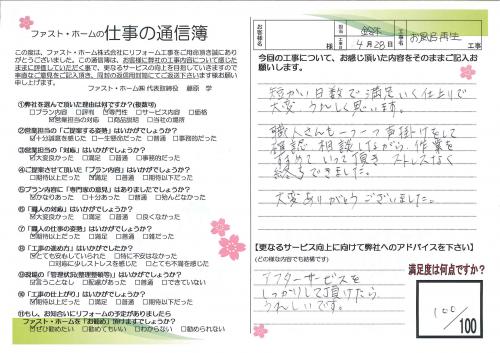 ファスト・ホームの仕事の通信簿
この度は、ファスト・ホーム株式会社にリフォーム工事をご用命頂き誠にあり
がとうございました。この通信簿は、お客様に弊社の工事内容について感じた
ままに評価していただく事で、更なるサービスの向上を目指していきますので
率直なご意見をご記入頂き、同封の返信用封筒にてご返送下さいます様お願い
申し上げます。
ファスト・ホーム㈱ 代表取締役 藤原 学
①弊社を選んで頂いた理由は何ですか?(複数可)
プラン内容 評判 専門性 サービス内容 価格
営業担当の対応 商品説明 当社の連携
②営業担当の「ご提案する姿勢」はいかがでしょうか?
十分誠意を感じた 一生懸命だった 普通 事務的だった
③営業担当の「対応」はいかがでしょうか?
大変良かった 満足 普通 事務的だった
④ご提案させて頂いた「プラン内容」はいかがでしたか?
期待以上だった 満足 普通 期待以下だった
⑤プラン内容に「専門家の意見」はありましたか?
かなりあった 十分あった 普通 殆どなかった
⑥「職人の対応」はいかがでしょうか?
大変良かった 満足 普通 良くなかった
⑦「職人の仕事の姿勢」はいかがでしょうか?
期待以上だった 満足 普通 雑だった
⑧「工事の進め方」はいかがでしたか?
とても安心していられた 特に不安はなかった
対応に少しストレスを感じた とても不満を感じた
⑨現場の「管理状況(整理整頓等)」はいかがでしたか?
言うことなし 配慮があった 普通 雑だった
⑩「工事の仕上がり」はいかがでしょうか?
期待以上だった 満足 普通 期待以下だった
⑪もし、お知合いにリフォームの予定がありましたら
ファスト・ホームを「お勧め」頂けますでしょうか?
ぜひ勧めたい 勧めてもいい わからない 勧められない
お客様名 様 担当 鈴木 工事 お風呂再生
工期 4月28日 工事
今回の工事について、お感じ頂いた内容をそのままご記入お
願いします。
短かい日数で満足いく仕上りで
大変うれしく思います。
職人さんも一つ一つ声掛けをして
確認、相談しながら、作業を
すすめていって頂きストレスなく
終えてきました。
大変ありがとうございました。
【更なるサービス向上に向けて弊社へのアドバイスを下さい】
(どの様な内容でも結構です)
アフターサービスを
しっかりして頂けたら
うれしいです。
満足度は何点ですか?
100
/100